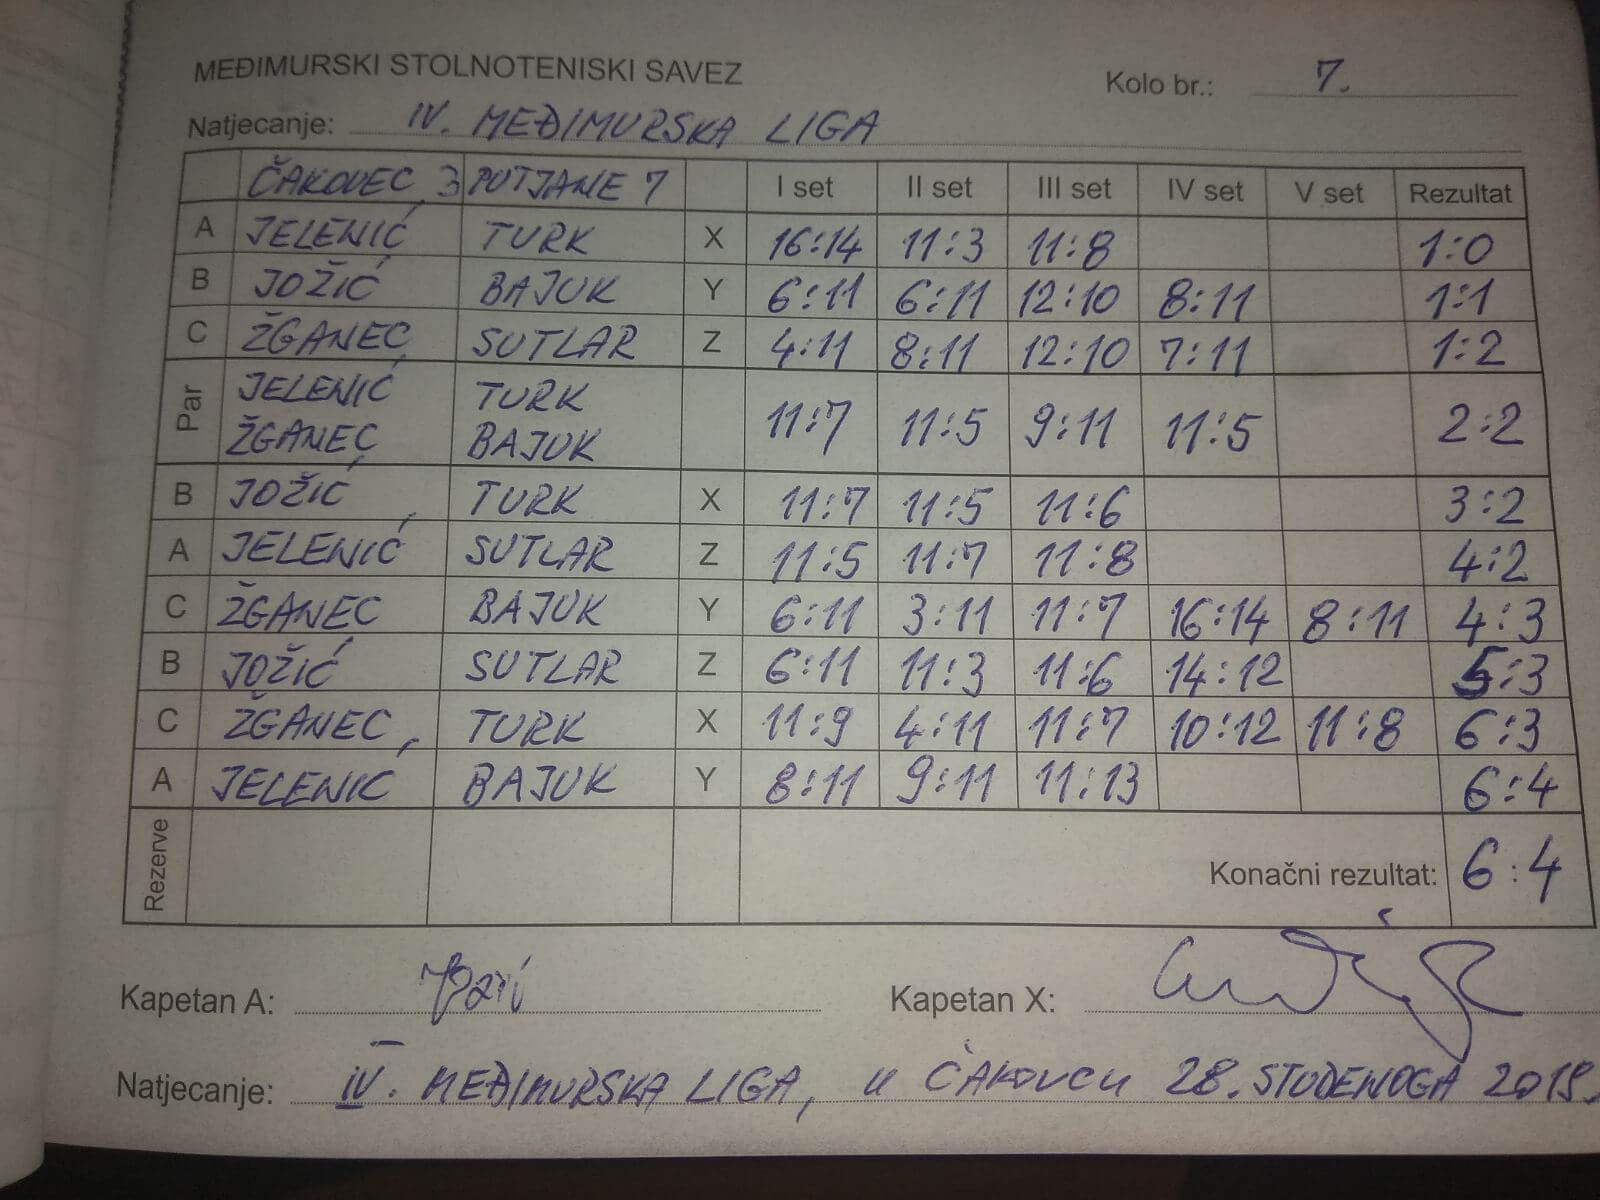 MEĐIMURSKI STOLNOTENISKI SAVEZ
Kolo br.: 7.
Natjecanje: IV. MEĐIMURSKA LIGA
ČAKOVEC 3 PUTJANE 7 I set II set III set IV set V set Rezultat
A JELENIĆ TURK X 16:14 11:3 11:8 1:0
B JOŽIĆ BAJUK Y 6:11 6:11 12:10 8:11 1:1
C ŽGANEC SUTLAR Z 4:11 8:11 12:10 7:11 1:2
Par JELENIĆ TURK
ŽGANEC BAJUK 11:7 11:5 9:11 11:5 2:2
B JOŽIĆ TURK X 11:7 11:5 11:6 3:2
A JELENIĆ SUTLAR Z 11:5 11:7 11:8 4:2
C ŽGANEC BAJUK Y 6:11 3:11 11:7 16:14 8:11 4:3
B JOŽIĆ SUTLAR Z 6:11 11:3 11:6 14:12 5:3
C ŽGANEC TURK X 11:9 4:11 11:7 10:12 11:8 6:3
A JELENIĆ BAJUK Y 8:11 9:11 11:13 6:4
Rezerve Konačni rezultat: 6:4
Kapetan A: Kapetan X:
Natjecanje: IV. MEĐIMURSKA LIGA, u ČAKOVCU 28. STUDENOGA 2019.